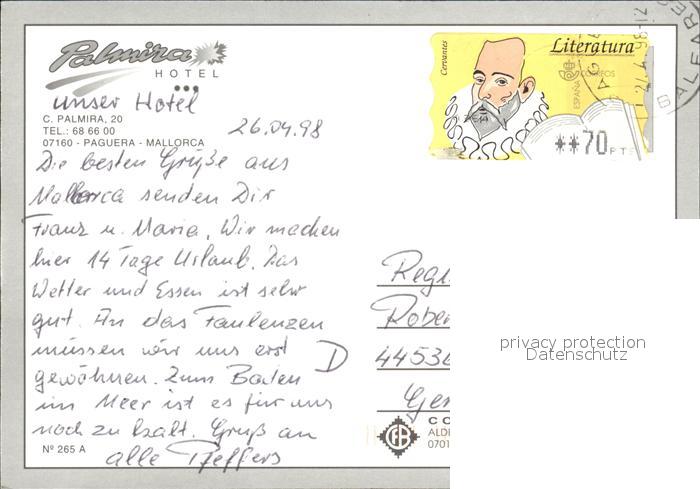 Palmira
HOTEL
unser Hotel
C. PALMIRA, 20
TEL.: 68 66 00
07160 - PAGUERA - MALLORCA
26.04.98
Die besten Grüße aus
Mallorca senden Dir
Franz u. Maria. Wir machen
hier 14 Tage Urlaub. Das
Wetter und Essen ist sehr
gut. An das Faulenzen
müssen wir uns erst
gewöhnen. Zum Baden
im Meer ist es für uns
noch zu kalt. Gruß an
alle Pfeffers
Nº 265 A
Cervantes
Literatura
CORREOS
ESPAÑA
**70 PTS
BALEARES
Regi
Rober
D
4453
Ge
privacy protection
Datenschutz
CO
ALDE
0701